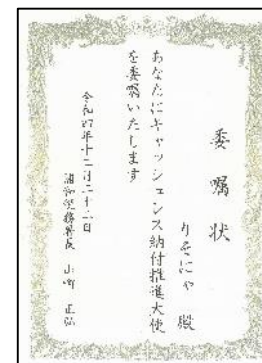 委嘱状
りそにゃ 殿
あなたにキャッシュレス納付推進大使
を委嘱いたします
令和四年十二月二十二日
浦和税務署長 山町 正